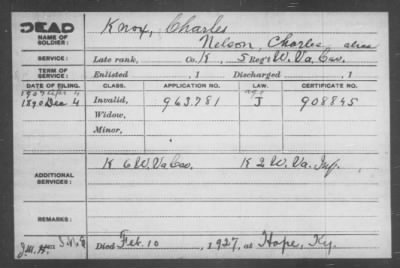 DEAD
NAME OF SOLDIER:
Knox, Charles
Nelson, Charles, alias
SERVICE:
Late rank, Co. K, 5 Reg't W. Va. Cav.
TERM OF SERVICE:
Enlisted , 1 Discharged , 1
DATE OF FILING. CLASS. APPLICATION NO. LAW. CERTIFICATE NO.
4
1890 Dec 4 Invalid, 963.781 J 908845
Widow,
Minor,
ADDITIONAL SERVICES:
K 6 W. Va Cav K 2 W. Va. Inf.
REMARKS:
Died Feb. 10, 1927, at Hope, Ky.